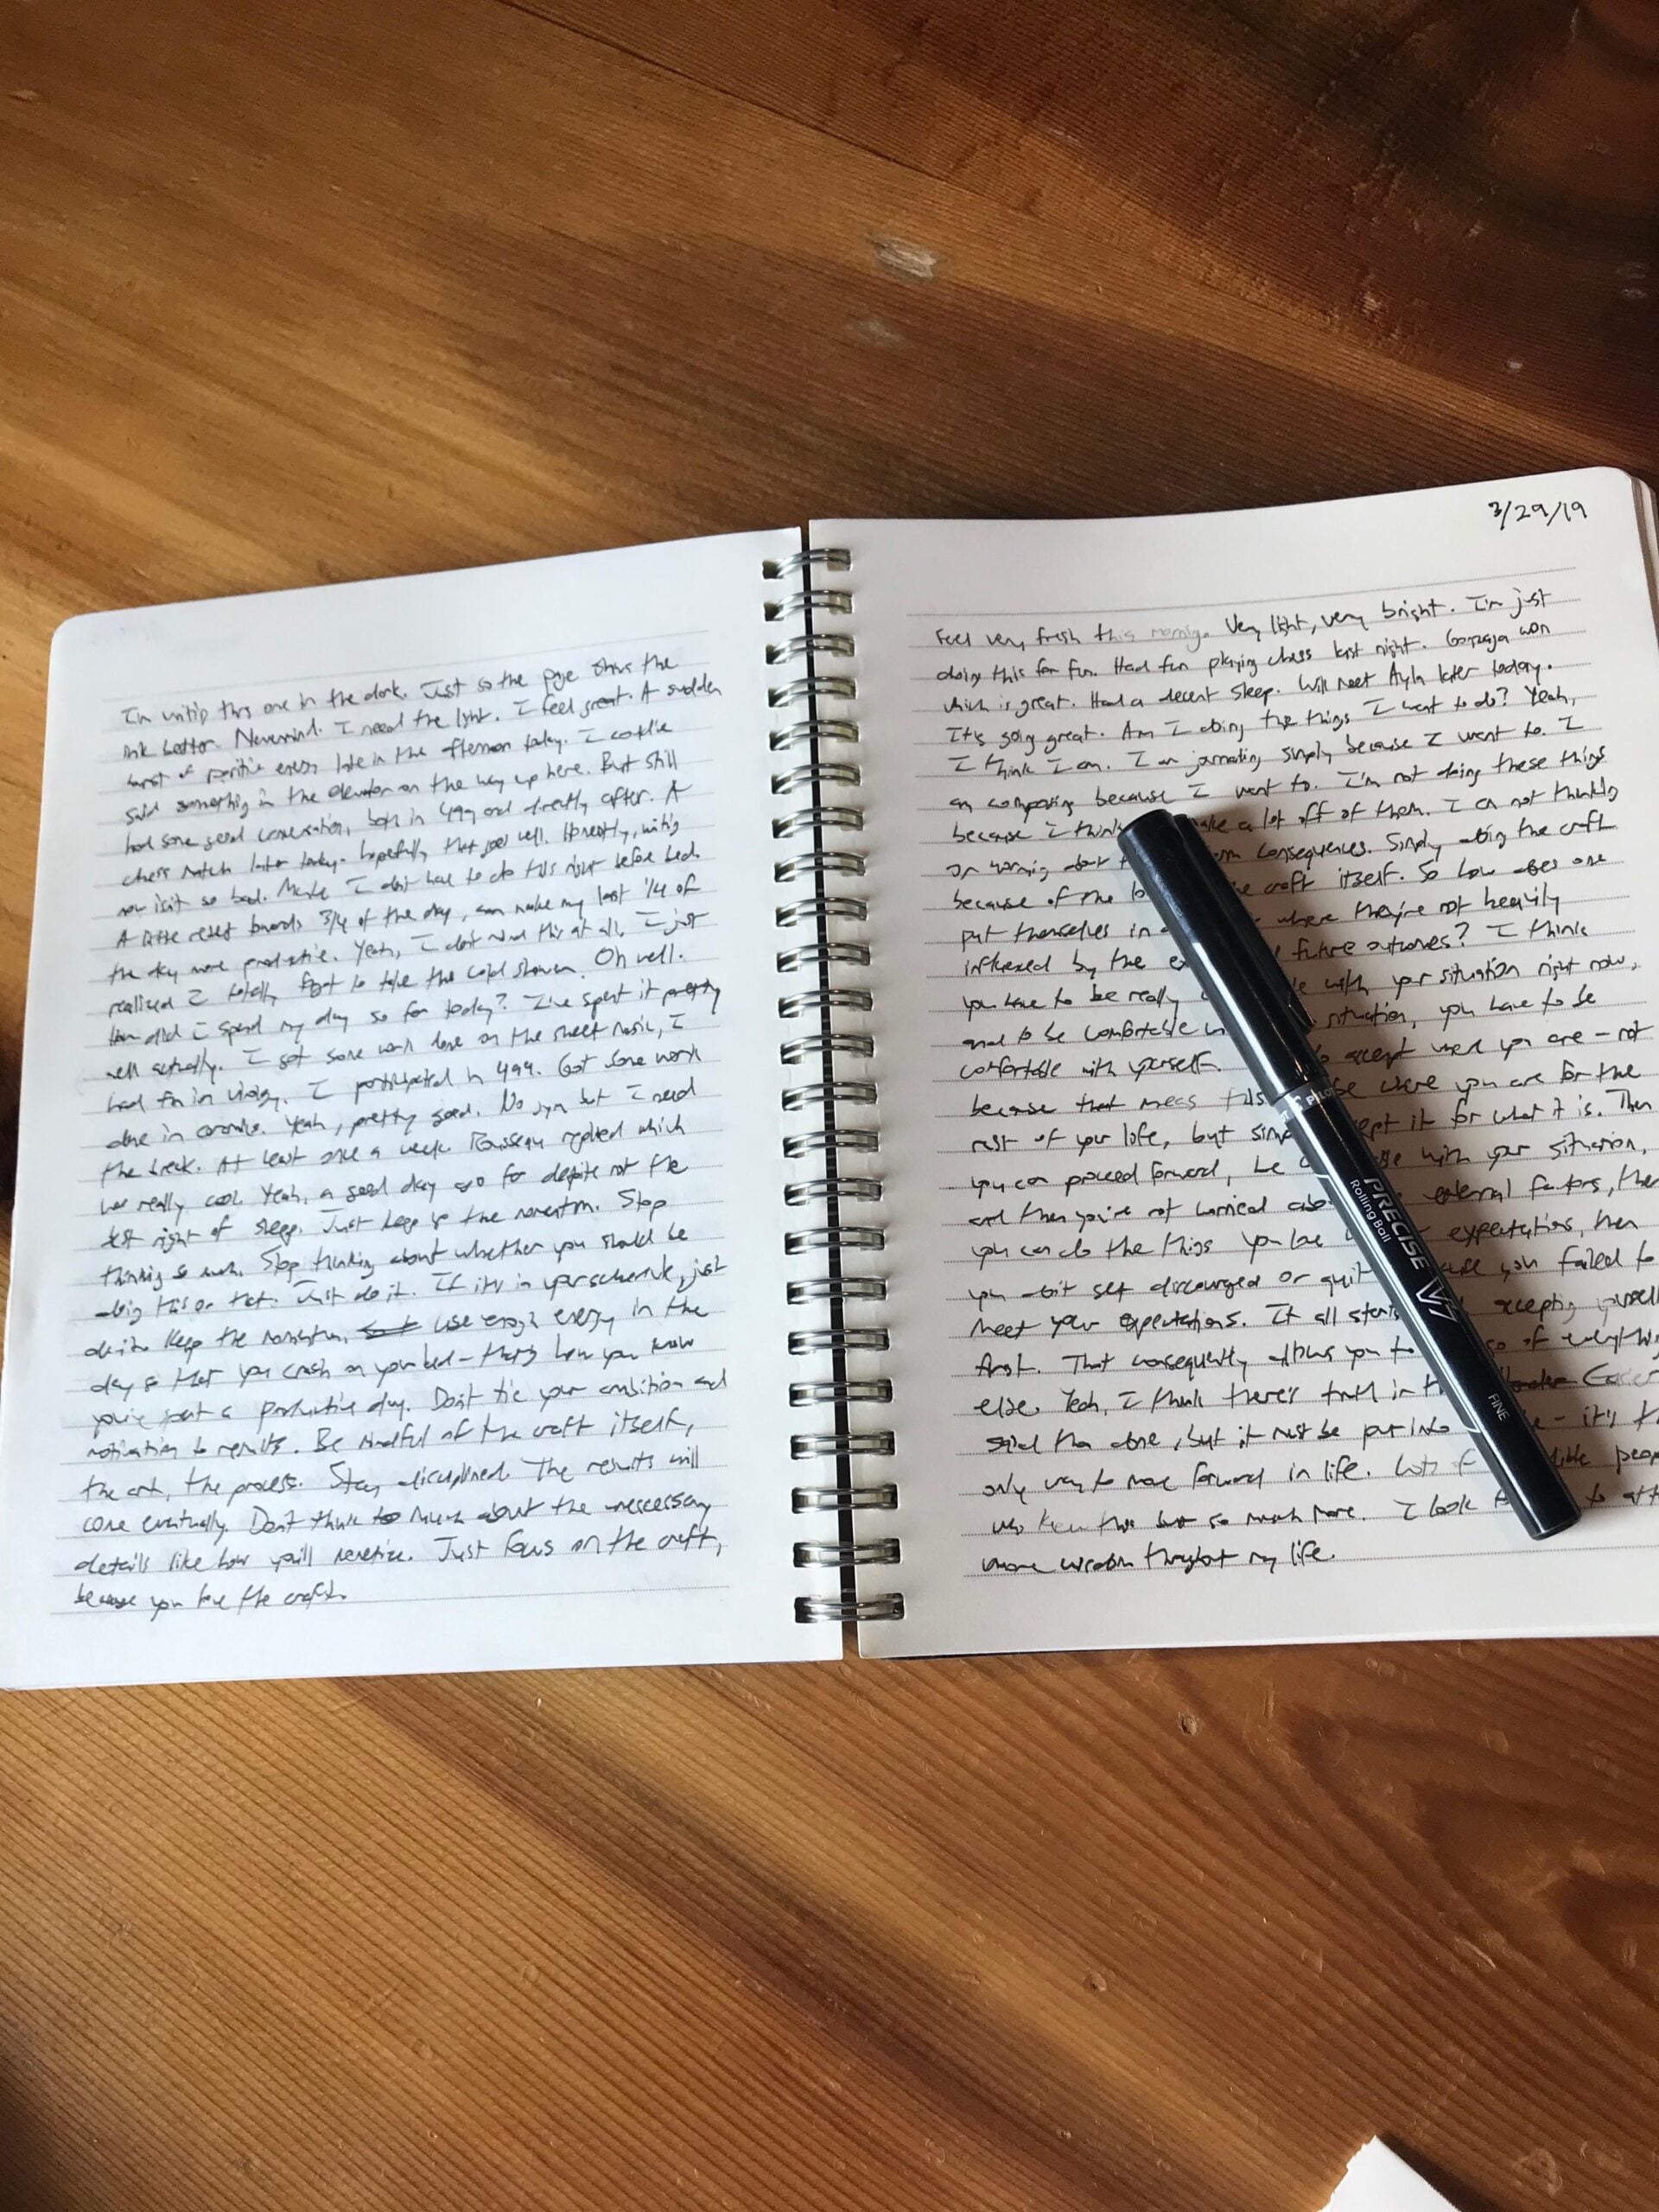 I'm writing this one in the dark. Just so the page shows the
ink better. Nevermind. I need the light. I feel great. A sudden
burst of positive energy late in the afternoon today. I
said something in the elevator on the way up here. But still
had some good conversation, both in 499 and directly after. A
chess match later today. Hopefully that goes well. Honestly, writing
now isn't so bad. Maybe I don't have to do this right before bed.
A little reset towards 3/4 of the day, can make my last 1/4 of
the day more productive. Yeah, I don't mind this at all. I just
realized I totally forgot to take the cold shower. Oh well.
How did I spend my day so far today? I've spent it pretty
well actually. I got some work done on the sheet music, I
had fun in . I participated in 499. Got some work
done in . Yeah, pretty good. No gym but I need
the break. At least once a week. Rousseau replied which
was really cool. Yeah, a good day so far despite not the
best night of sleep. Just keep up the momentum. Stop
thinking so much. Stop thinking about whether you should be
doing this or that. Just do it. If it's in your schedule, just
do it. Keep the momentum. use enough energy in the
day so that you crash on your bed - that's how you know
you've spent a productive day. Don't tie your ambition and
motivation to results. Be mindful of the craft itself,
the art, the process. Stay disciplined. The results will
come eventually. Don't think too much about the unnecessary
details like how you'll monetize. Just focus on the craft,
because you love the craft.
3/29/19
Feel very fresh this morning. Very light, very bright. I'm just
doing this for fun. Had fun playing chess last night. Gonzaga won
which is great. Had a decent sleep. Will meet Ayla later today.
It's going great. Am I doing the things I want to do? Yeah,
I think I am. I am journaling simply because I want to. I
am composing because I want to. I'm not doing these things
because I think make a lot off of them. I am not thinking
or worrying about consequences. Simply doing the craft
because of the craft itself. So how does one
put themselves in where they're not heavily
influenced by the future outcomes? I think
you have to be really with your situation right now,
and to be comfortable situation, you have to be
comfortable with yourself. accept where you are - not
because that means where you are for the
rest of your life, but it for what it is. Then
you can proceed forward, be with your situation,
and then you're not worried external factors, then
you can do the things you love expectations, then
you don't get discouraged or quit you failed to
meet your expectations. It all stems accepting yourself
first. That consequently allows you to of everything
else. Yeah, I think there's truth in Easier
said than done, but it must be put into - it's the
only way to move forward in life. Lots of people
who knew this but so much more. I look to
more wisdom throughout my life.
PILOT
PRECISE V7
Rolling Ball
FINE